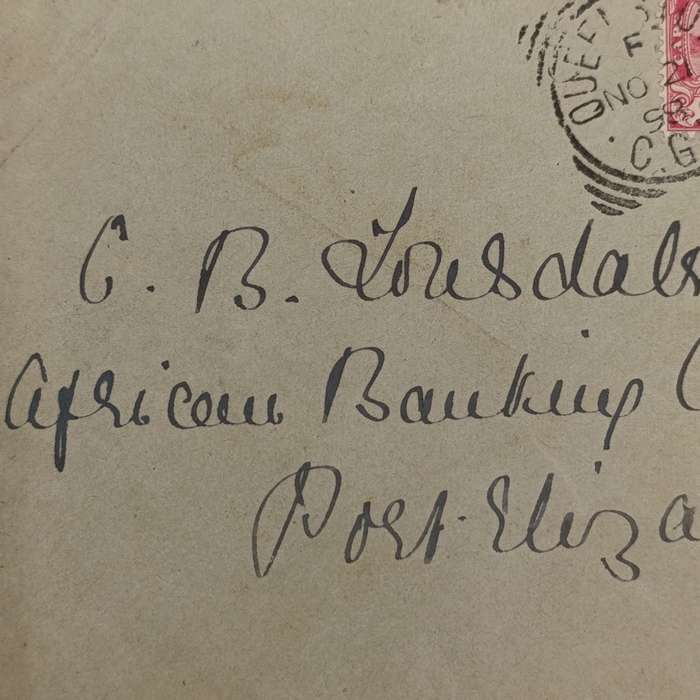 F
NO 21
98
C.G
C. B. Lonsdale
African Banking C
Port Eliza